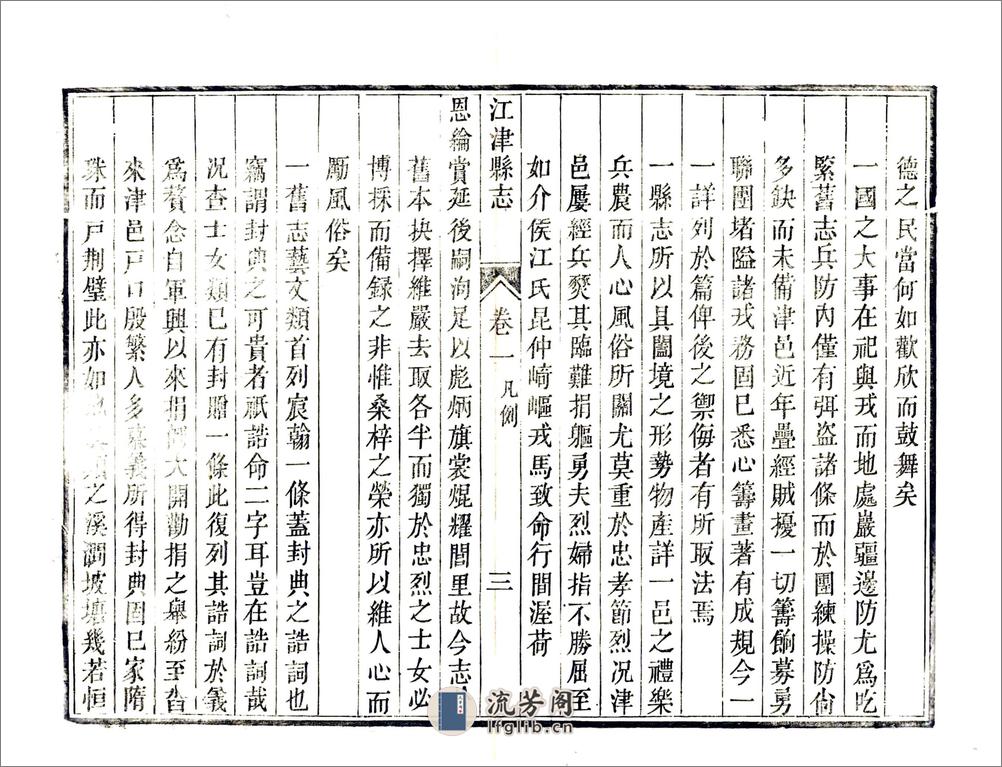 德之民當何如歡欣而鼓舞矣
一國之大事在祀與戎而地處巖疆邊防尤爲吃
緊舊志兵防內僅有弭盜諸條而於團練操防尙
多缺而未備津邑近年疊經賊擾一切籌餉募勇
聯團堵隘諸戎務固已悉心籌畫著有成規今一
一詳列於篇俾後之禦侮者有所取法焉
一縣志所以具闔境之形勢物產詳一邑之禮樂
兵農而人心風俗所關尤莫重於忠孝節烈况津
邑屢經兵燹其臨難捐軀勇夫烈婦指不勝屈至
如介侯江氏昆仲崎嶇戎馬致命行間渥荷
江津縣志 卷一 凡例 三
恩綸賞延後嗣洵足以彪炳旂裳焜耀閭里故今志
舊本抉擇維嚴去取各半而獨於忠烈之士女必
博採而備録之非惟桑梓之榮亦所以維人心而
勵風俗矣
一舊志藝文類首列宸翰一條蓋封典之誥詞也
竊謂封典之可貴者祇誥命二字耳豈在誥詞哉
况查士女類已有封贈一條此復列其誥詞於義
爲贅念自軍興以來捐例大開勸捐之舉紛至沓
來津邑戸口殷繁人多慕義所得封典固已家隋
珠而戸荆璧此亦如之溪澗坡壤幾若恒
流芳阁
lfglib.cn